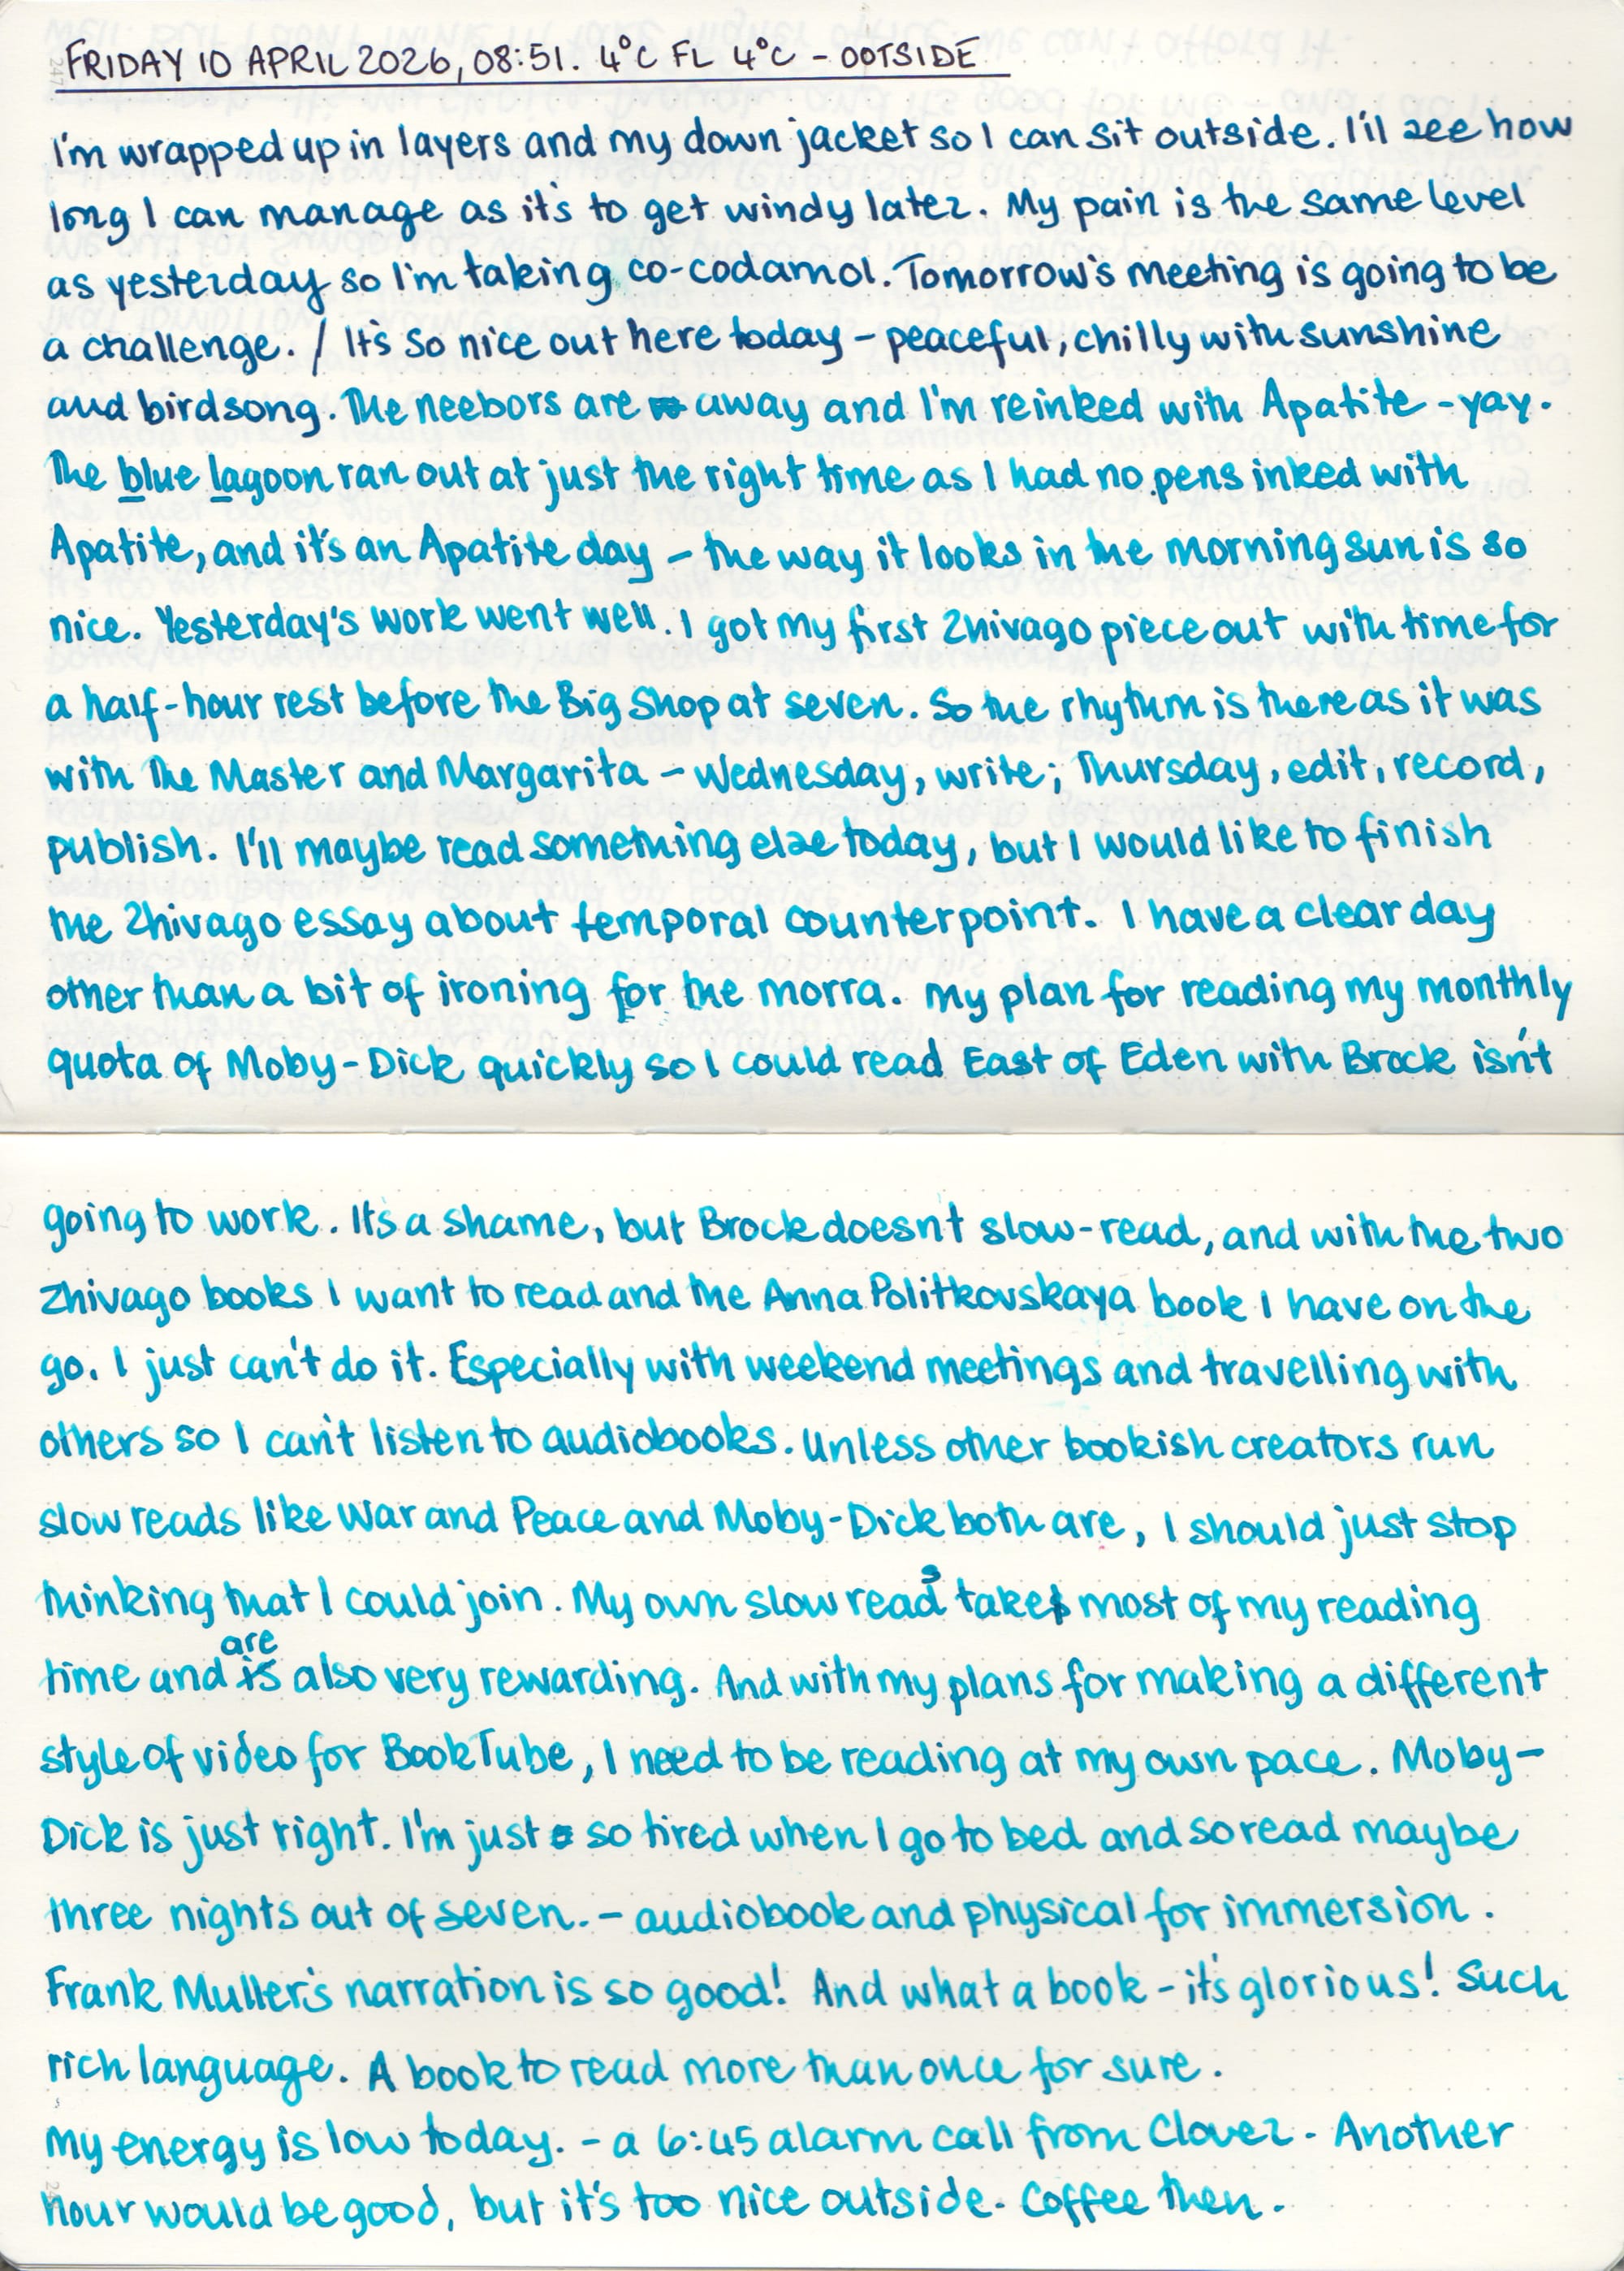 FRIDAY 10 APRIL 2026, 08:51. 4°C FL 4°C - OOTSIDE
I'm wrapped up in layers and my down jacket so I can sit outside. I'll see how
long I can manage as it's to get windy later. My pain is the same level
as yesterday so I'm taking co-codamol. Tomorrow's meeting is going to be
a challenge. / It's so nice out here today - peaceful, chilly with sunshine
and birdsong. The neebors are away and I'm reinked with Apatite - yay.
The blue lagoon ran out at just the right time as I had no pens inked with
Apatite, and it's an Apatite day - the way it looks in the morning sun is so
nice. Yesterday's work went well. I got my first Zhivago piece out with time for
a half-hour rest before the Big Shop at seven. So the rhythm is there as it was
with The Master and Margarita - Wednesday, write; Thursday, edit, record,
publish. I'll maybe read something else today, but I would like to finish
the Zhivago essay about temporal counterpoint. I have a clear day
other than a bit of ironing for the morra. My plan for reading my monthly
quota of Moby-Dick quickly so I could read East of Eden with Brock isn't
going to work. It's a shame, but Brock doesn't slow-read, and with the two
Zhivago books I want to read and the Anna Politkovskaya book I have on the
go. I just can't do it. Especially with weekend meetings and travelling with
others so I can't listen to audiobooks. Unless other bookish creators run
slow reads like War and Peace and Moby-Dick both are, I should just stop
thinking that I could join. My own slow reads take most of my reading
time and are also very rewarding. And with my plans for making a different
style of video for BookTube, I need to be reading at my own pace. Moby-
Dick is just right. I'm just so tired when I go to bed and so read maybe
three nights out of seven. - audiobook and physical for immersion.
Frank Muller's narration is so good! And what a book - it's glorious! Such
rich language. A book to read more than once for sure.
My energy is low today. - a 6:45 alarm call from Clover - Another
hour would be good, but it's too nice outside. Coffee then.